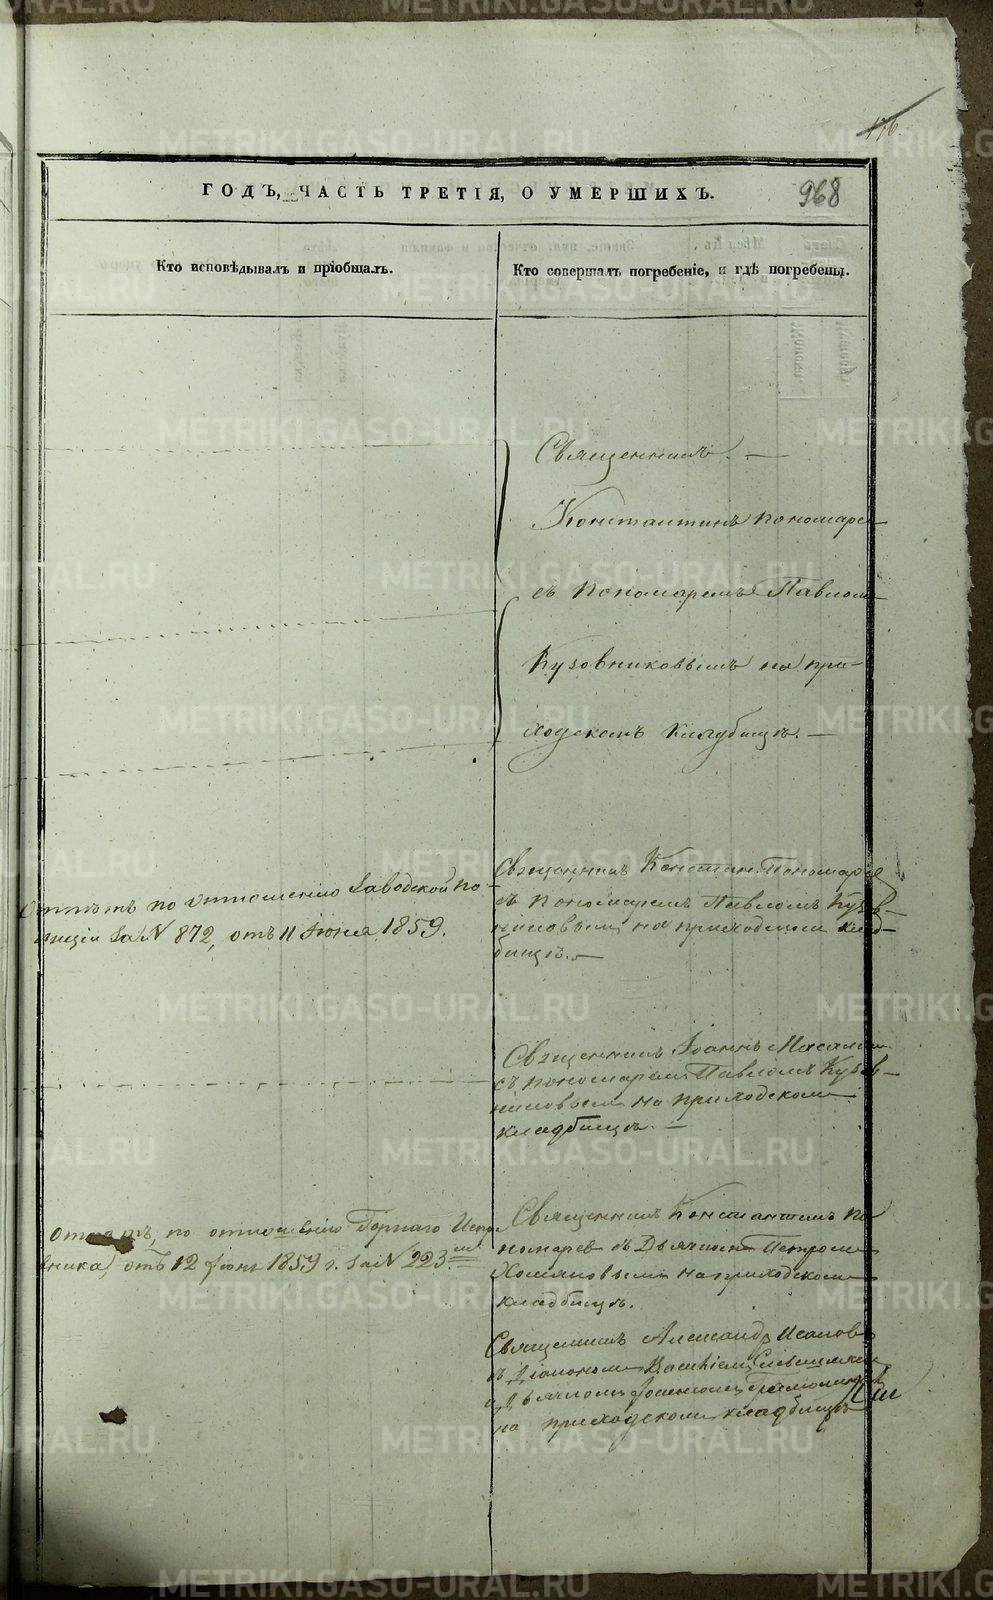 176
ГОДЪ, ЧАСТЬ ТРЕТІЯ, О УМЕРШИХЪ.
968
Кто исповѣдывалъ и пріобщалъ.
Кто совершалъ погребеніе, и гдѣ погребены.
Священникъ
Константинъ Пономарев
съ пономаремъ Павломъ
Кузовниковымъ на при-
ходскомъ кладбищѣ.
Отпѣтъ по отношенію Заводской по-
лиціи за N 872, отъ 11 Іюня 1859.
Священникъ Констан. Пономарев
съ пономаремъ Павломъ Кузов-
никовымъ на приходскомъ клад-
бищѣ.
Священникъ Іоаннъ
съ пономаремъ Павломъ Кузов-
никовымъ на приходскомъ
кладбищѣ.
Отпѣтъ, по отношенію Горнаго Испра-
вника, отъ 12 Іюня 1859 г. за N 223.
Священникъ Константинъ По-
номарев съ Дьячкомъ Петромъ
Хомяковымъ на приходскомъ
кладбищѣ.
Священникъ Александр
съ Діакономъ Василіемъ
и Дьячкомъ
на приходскомъ кладбищѣ
METRIKI.GASO-URAL.RU